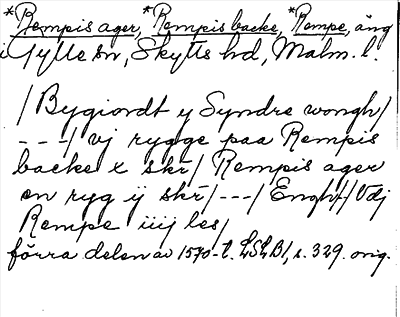 *Rempis ager, *Rempis backe, *Rempe, äng
i Gylle sn, Skytts hd, Malm. l.
/Bygiordt y Syndre wongh/
---/ vj rygge paa Rempis
backe x skr/ Rempis ager
en ryg ij skr/---/Enght/Vdj
Rempe iiij les/
förra delen av 1570-t. LSLB1, s. 329. orig.